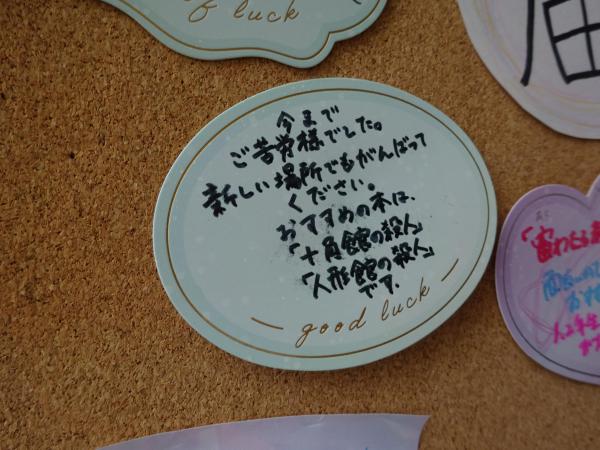 of luck
今まで
ご苦労様でした。
新しい場所でもがんばって
ください。
おすすめの本は、
「十角館の殺人」
「人形館の殺人」
です.
good luck